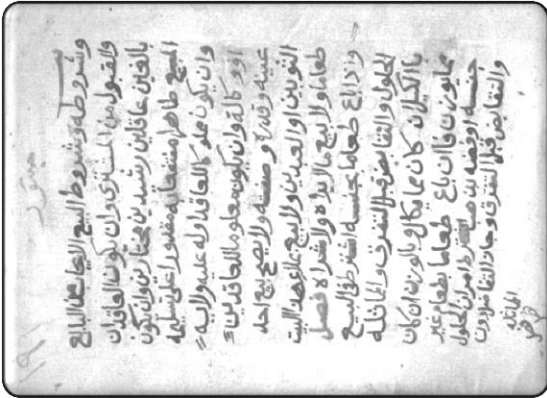 وشروطه وشروط البيع الايجاب من البايع
والقبول من المشتري وان يكون العاقدان
بالغين عاقلين رشيدين مختارين وان يكون
المبيع طاهرا منتفعا به مقدورا على تسليمه
وان يكون مملوكا للعاقد او له عليه ولايه
او وكالة وان يكون معلوما للعاقدين
عينه وقدره وصفته ولا يصح بيع احد
الثوبين او العبدين ولا بيع
طعاما ولا بيع مالا يراه ولا شراه فصل
واذا باع طعاما بجنسه اشترط في البيع
الحلول والتقابض قبل التفرق والمماثلة
بالكيل ان كان مما يكال وبالوزن ان كان
مما يوزن فان باع طعاما بطعام غير
جنسه او فضه بذهب اشترط امران الحلول
والتقابض قبل التفرق وجاز التفاضل دون
المماثله